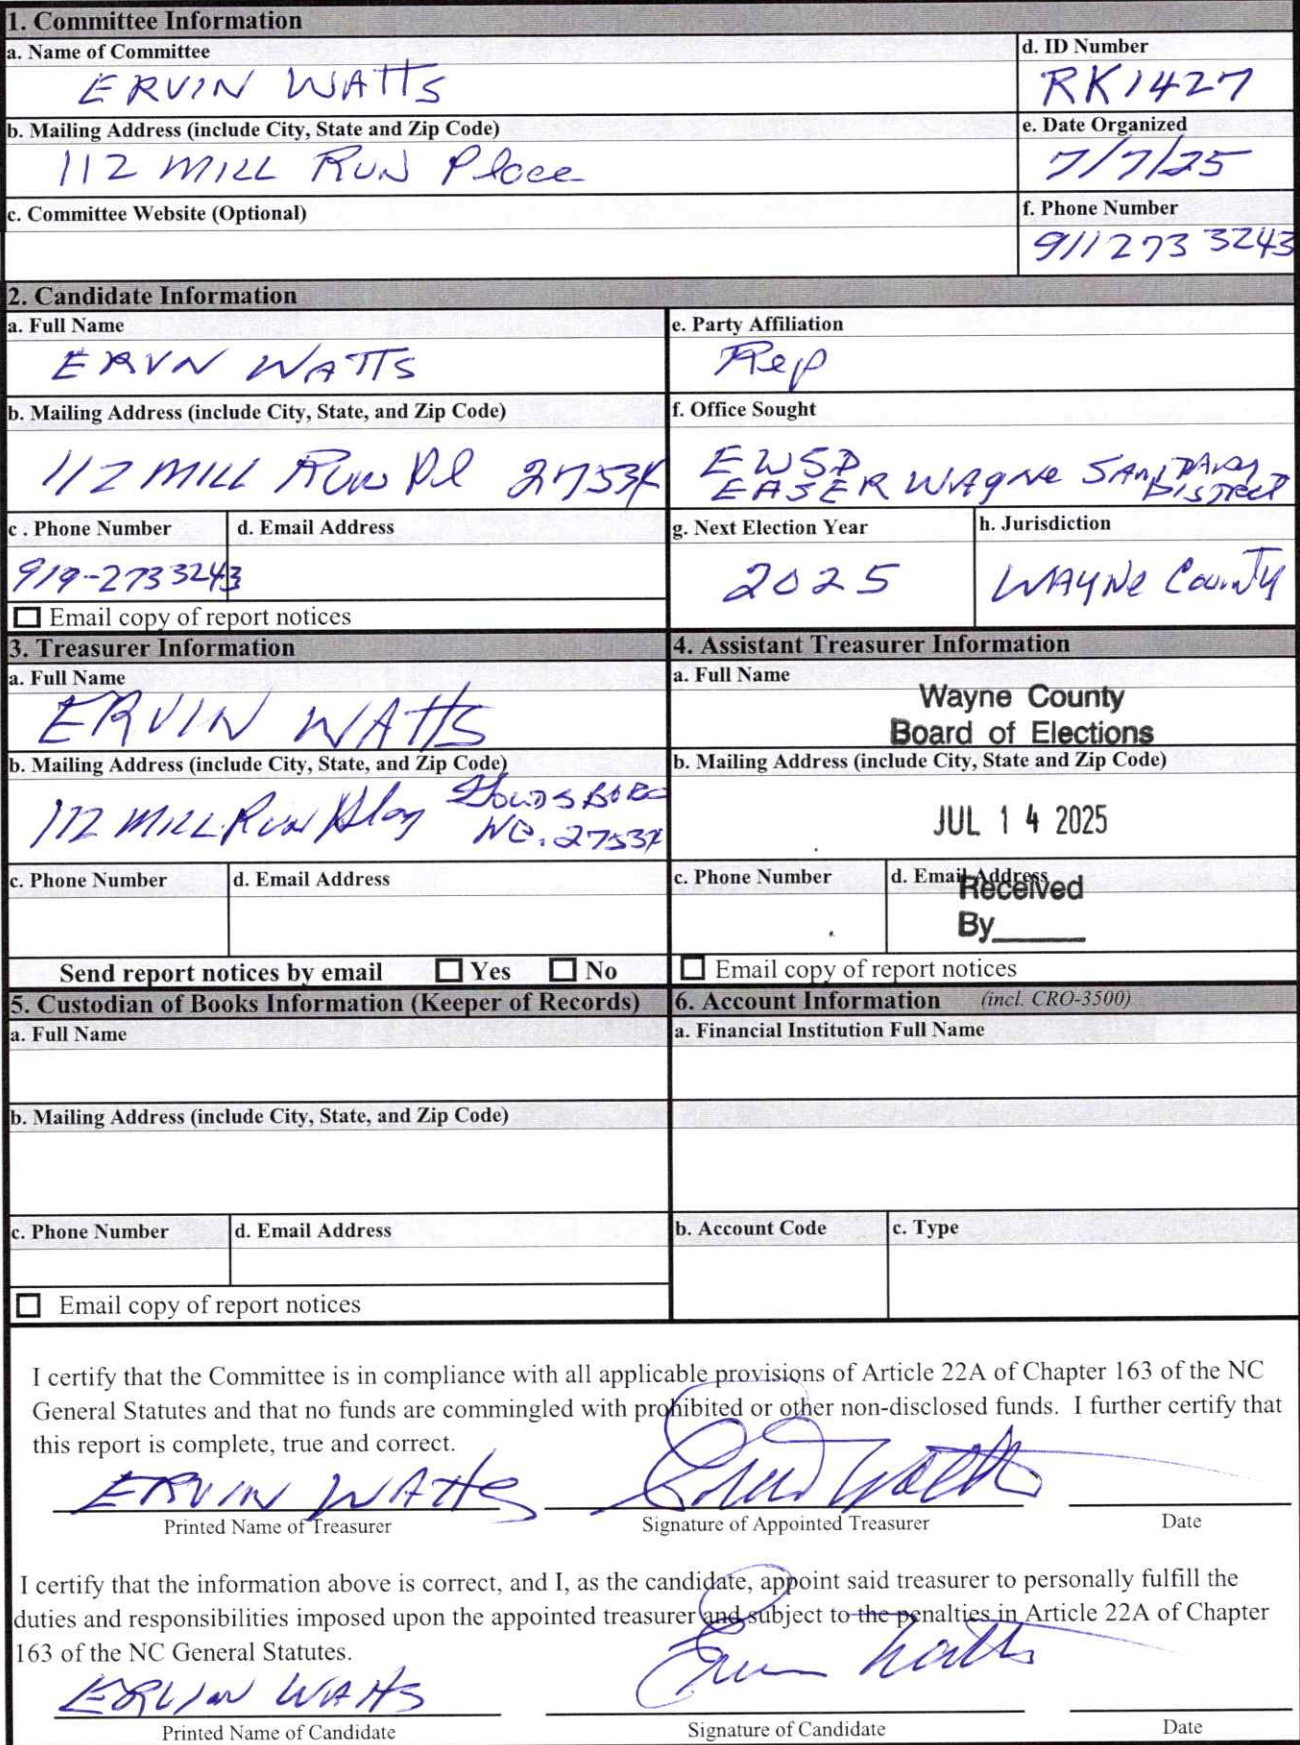 1. Committee Information
a. Name of Committee
ERVIN WATTS
d. ID Number
RK1427
b. Mailing Address (include City, State and Zip Code)
112 MILL RUN Place
e. Date Organized
7/7/25
c. Committee Website (Optional)
f. Phone Number
911 273 3243
2. Candidate Information
a. Full Name
ERVN WATTS
e. Party Affiliation
Rep
b. Mailing Address (include City, State, and Zip Code)
112 MILL RUN Pl 27534
f. Office Sought
EWSD
EASER WAYNE SANITARY
DISTRICT
c . Phone Number
919-273 3243
d. Email Address
Email copy of report notices
g. Next Election Year
2025
h. Jurisdiction
WAYNE County
3. Treasurer Information
a. Full Name
ERVIN WATTS
b. Mailing Address (include City, State, and Zip Code)
112 MILL RUN GOLDSBORO
NC. 27534
c. Phone Number
d. Email Address
Send report notices by email Yes No
4. Assistant Treasurer Information
a. Full Name
Wayne County
Board of Elections
b. Mailing Address (include City, State and Zip Code)
JUL 14 2025
c. Phone Number
d. Email Address
Received
By
Email copy of report notices
5. Custodian of Books Information (Keeper of Records)
a. Full Name
b. Mailing Address (include City, State, and Zip Code)
c. Phone Number
d. Email Address
Email copy of report notices
6. Account Information (incl. CRO-3500)
a. Financial Institution Full Name
b. Account Code
c. Type
I certify that the Committee is in compliance with all applicable provisions of Article 22A of Chapter 163 of the NC
General Statutes and that no funds are commingled with prohibited or other non-disclosed funds. I further certify that
this report is complete, true and correct.
ERVIN WATTS Ervin Watts
Printed Name of Treasurer Signature of Appointed Treasurer Date
I certify that the information above is correct, and I, as the candidate, appoint said treasurer to personally fulfill the
duties and responsibilities imposed upon the appointed treasurer and subject to the penalties in Article 22A of Chapter
163 of the NC General Statutes.
ERVIN WATTS Ervin Watts
Printed Name of Candidate Signature of Candidate Date